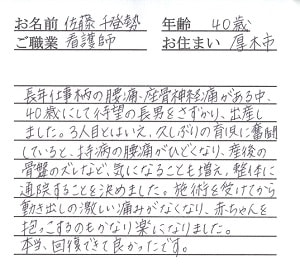 お名前 佐藤 千登勢 年齢 40歳
ご職業 看護師 お住まい 厚木市
長年仕事柄の腰痛、座骨神経痛がある中、
40歳にして待望の長男をさずかり、出産し
ました。3人目とはいえ、久しぶりの育児に奮闘
していると、持病の腰痛がひどくなり、産後の
骨盤のズレなど、気になることも増え、整体に
通院することを決めました。施術を受けてから
動き出しの激しい痛みがなくなり、赤ちゃんを
抱っこするのもかなり楽になりました。
本当、回復できて良かったです。